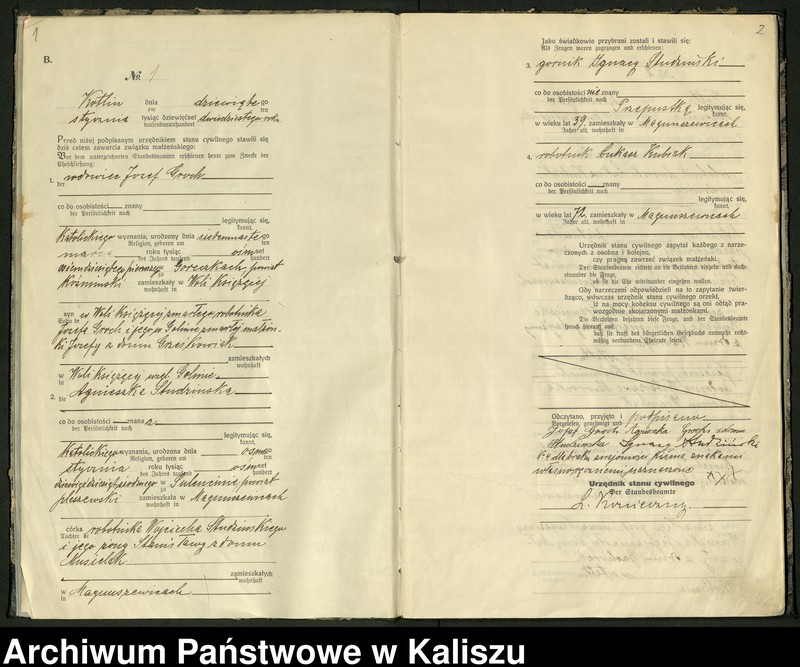 1
B.
№ 1
Kotlin dnia dziewiątego
am ten
stycznia tysiąc dziewięćset dwudziestego roku
tausendneunhundert
Przed niżej podpisanym urzędnikiem stanu cywilnego stawili się
dziś celem zawarcia związku małżeńskiego:
Vor dem unterzeichneten Standesbeamten erschienen heute zum Zwecke der
Eheschließung:
1. wdowiec Josef Groch
der
co do osobistości — znany
der Persönlichkeit nach
legitymując się,
kannt,
Katolickiego wyznania, urodzony dnia siedemnastego
Religion, geboren am ten
marca roku tysiąc ośmset
des Jahres tausend
ośmdziesiątego pierwszego w Goreczkach powiat
Koźmiński zamieszkały w Woli Książęcej
wohnhaft in
syn w Woli Książęcej zmarłego robotnika
Sohn de
Józefa Groch i jego w Golinie zmarłej małżon-
ki Józefy z domu Grześkowiak
zamieszkałych
wohnhaft
w Woli Książęcej wzgl. Golinie
in
2. Agnieszka Studzińska
die
co do osobistości — znana
der Persönlichkeit nach
legitymując się,
kannt,
Katolickiego wyznania, urodzona dnia osmego
Religion, geboren am ten
stycznia roku tysiąc ośmset
des Jahres tausend
dziewięćdziesiątego siódmego w Sulencinie powiat
pleszewski zamieszkała w Magnuszewicach
wohnhaft in
córka robotnika Wojciecha Studzinskiego
Tochter de
i jego żony Stanisławy z domu
Musielak
zamieszkałych
wohnhaft
w Magnuszewicach
in
2
Jako świadkowie przybrani zostali i stawili się:
Als Zeugen waren zugezogen und erschienen:
3. górnik Ignacy Studziński
co do osobistości nie znany
der Persönlichkeit nach
Przepustką legitymując się,
kannt,
w wieku lat 39, zamieszkały w Magnuszewicach
Jahre alt, wohnhaft in
4. robotnik Łukasz Kubiak
co do osobistości — znany
der Persönlichkeit nach
legitymując się,
kannt,
w wieku lat 72, zamieszkały w Magnuszewicach
Jahre alt, wohnhaft in
Urzędnik stanu cywilnego zapytał każdego z narze-
czonych z osobna i kolejno,
czy pragną zawrzeć związek małżeński.
Der Standesbeamte richtete an die Verlobten einzeln und nach-
einander die Frage,
ob sie die Ehe miteinander eingehen wollen.
Gdy narzeczeni odpowiedzieli na to zapytanie twier-
dząco, wówczas urzędnik stanu cywilnego orzekł,
iż na mocy kodeksu cywilnego są oni odtąd pra-
wozgodnie skojarzonymi małżonkami.
Die Verlobten bejahten diese Frage, und der Standesbeamte
sprach hierauf aus,
daß sie kraft des bürgerlichen Gesetzbuchs nunmehr recht-
mäßig verbundene Eheleute seien.
Odczytano, przyjęto i podpisano
Vorgelesen, genehmigt und
Józef Groch Agnieszka Groch z domu
Studzinska Ignacy Studziński
własnoręcznemi
xxx
Urzędnik stanu cywilnego
Der Standesbeamte
Archiwum Państwowe w Kaliszu